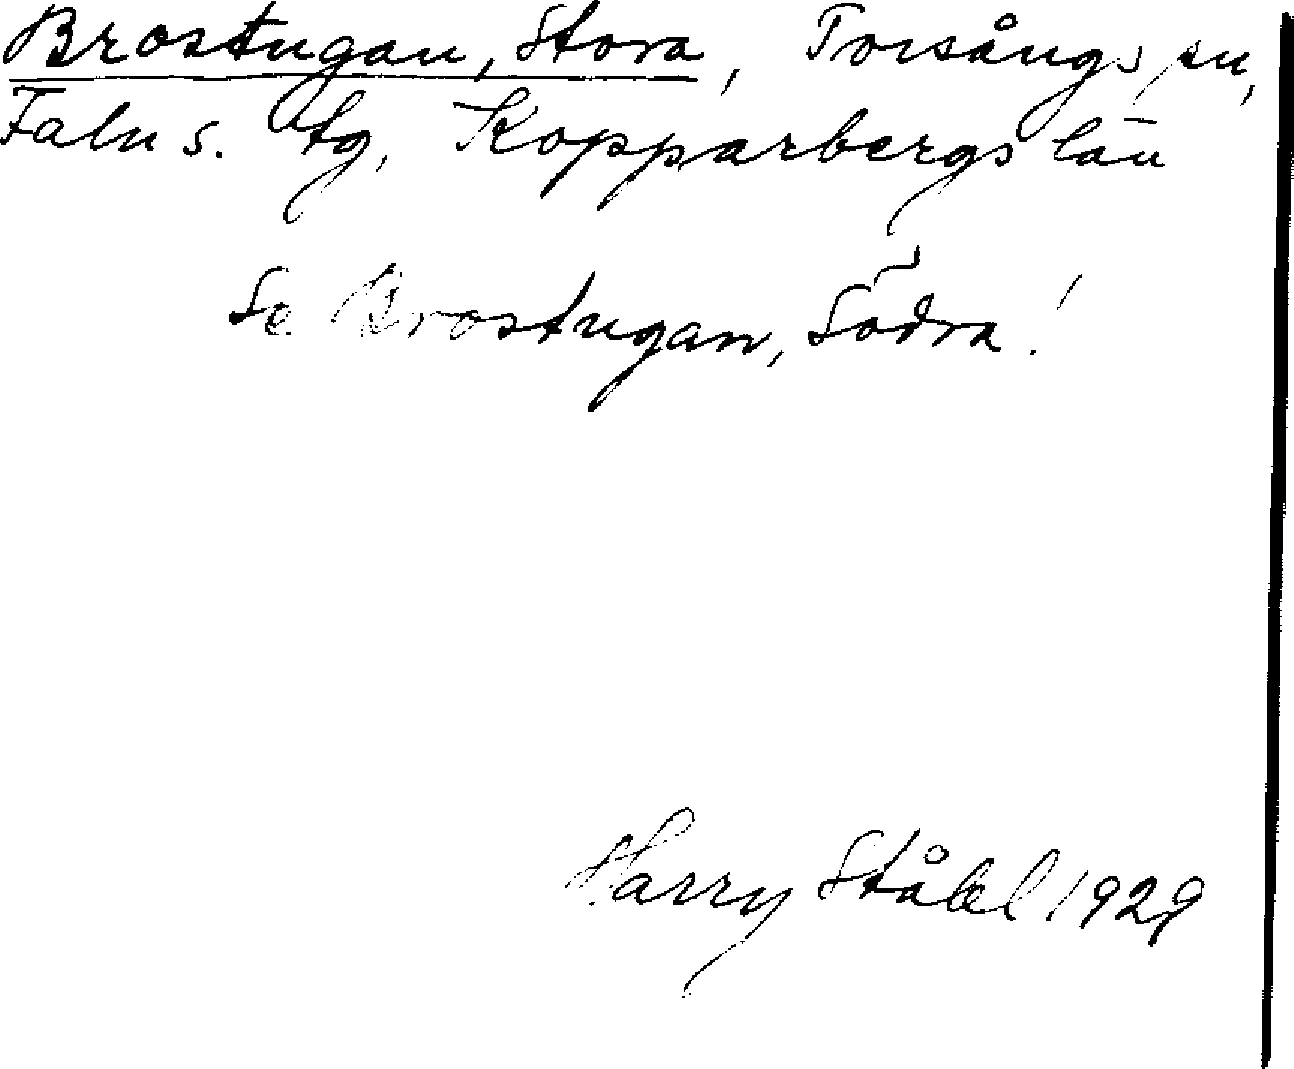 Brostugan, Stora, Torsångs sn,
Falu s. tg, Kopparbergs län
Se Brostugan, Södra!
Harry Ståhl 1929